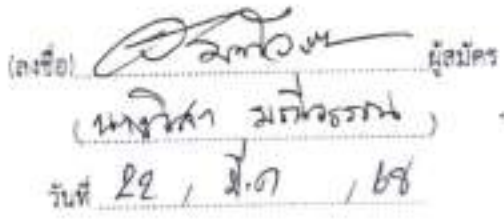 (ลงชื่อ) ผู้สมัคร
(นางวิสา มณีวรรณ)
วันที่ 22 / มี.ค / 68